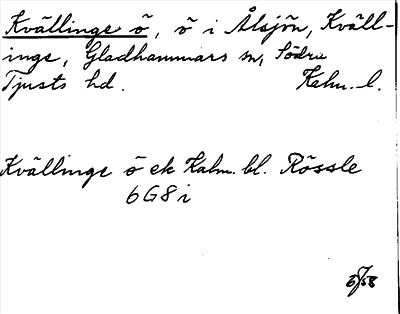 Kvällinge ö, ö i Ålsjön, Kväll-
inge, Gladhammars sn, Södra
Tjusts hd. Kalm. l.
Kvällinge ö ek Kalm. bl. Rössle
6G8i